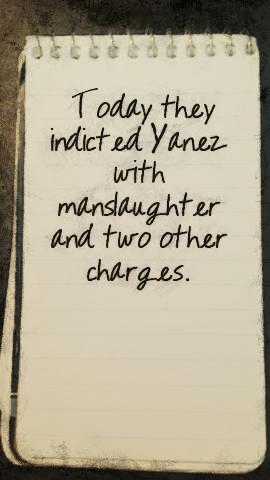 Today they
indicted Yanez
with
manslaughter
and two other
charges.